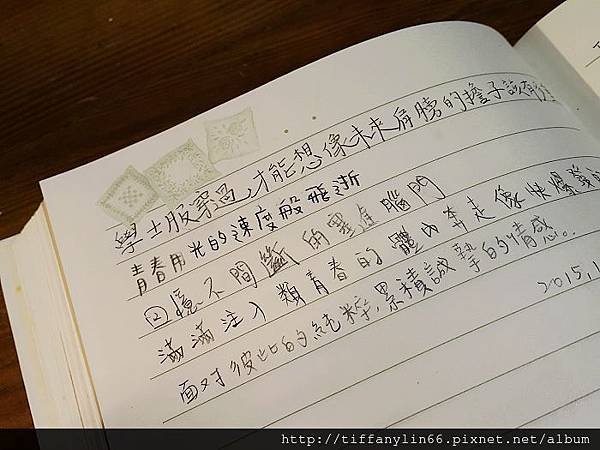 學士服穿過,才能想像未來肩膀的擔子該有
青春用光的速度般飛逝
回憶不間斷的塞進腦門
滿滿注入類青春的體內奔走像快爆發
面對彼此的純粹,累積誠摯的情感。
2015.1
http://tiffanylin66.pixnet.net/album